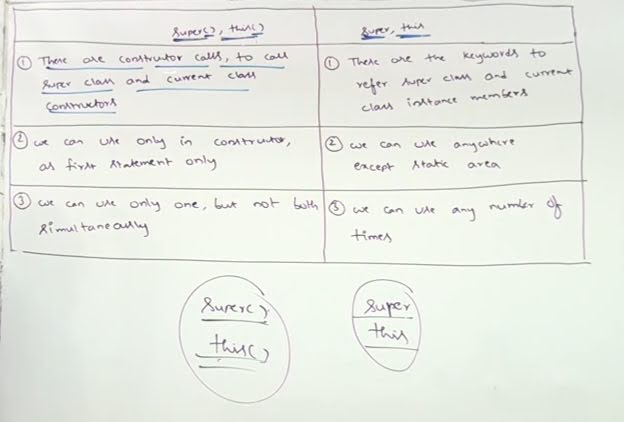 super(), this()
super, this
① These are constructor calls, to call
super class and current class
constructors
① These are the keywords to
refer super class and current
class instance members
② we can use only in constructor,
as first statement only
② we can use anywhere
except static area
③ we can use only one, but not both
simultaneously
③ we can use any number of
times
super()
this()
super
this